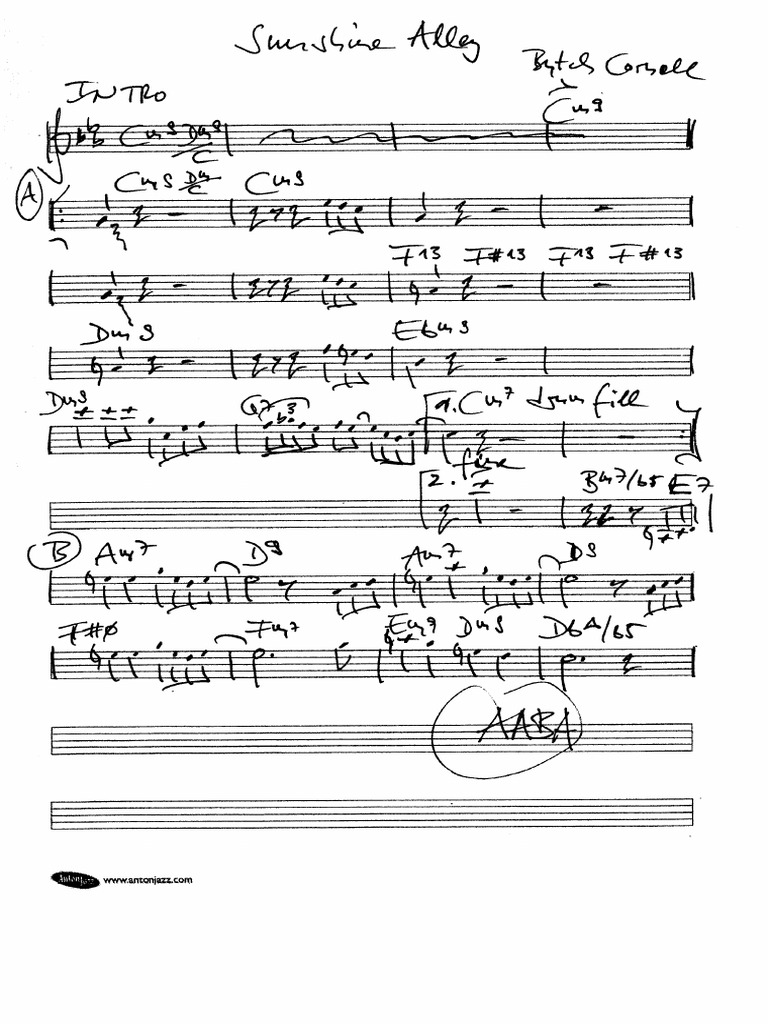 Sunshine Alley
Butch Cornell
INTRO
Cm9 Dm9/C Cm9
A Cm9 Dm/C Cm9
F13 F#13 F13 F#13
Dm9 Ebm9
Dm9 G7 b3 1. Cm7 drum fill
2. fine Bm7/b5 E7
B Am7 D9 Am7 D9
F#ø Fm7 Em9 Dm9 DbΔ/b5
AABA
AntonJazz www.antonjazz.com